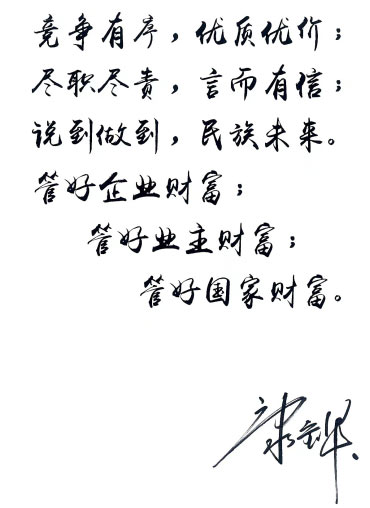 竞争有序，优质优价；
尽职尽责，言而有信；
说到做到，民族未来。
管好企业财富；
管好业主财富；
管好国家财富。